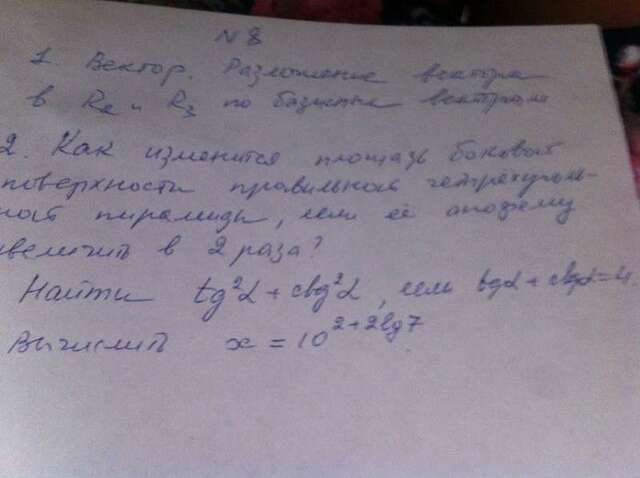 N 8
1 Вектор. Разложение вектора
в R2 и R3 по базисным векторам
2. Как изменится площадь боковой
поверхности правильной четырехуголь-
ной пирамиды, если её апофему
увеличить в 2 раза?
Найти tg²α + ctg²α, если tgα + ctgα = 4
Вычислить x = 10^{2+2lg7}